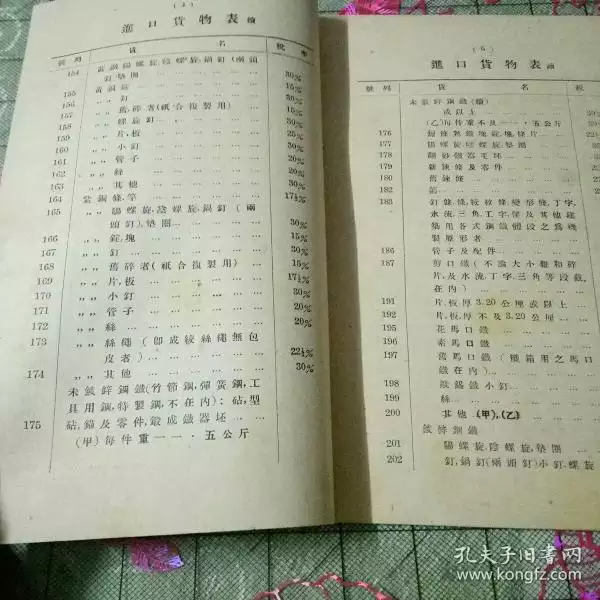 (5)
進口貨物表 續
號列 貨名 稅率
154 黃銅陽螺旋,陰螺旋,鍋釘(兩頭
釘)墊圈 30%
155 黃銅錠 15%
156 〃〃釘 30%
157 〃〃舊,碎者(祇合複製用) 15%
158 〃〃螺旋釘 30%
159 〃〃片,板 25%
160 〃〃小釘 30%
161 〃〃管子 20%
162 〃〃絲 20%
163 〃〃其他 30%
164 紫銅條,竿 17½%
165 〃〃陽螺旋,陰螺旋,鍋釘(兩
頭釘),墊圈 30%
166 〃〃錠,塊 15%
167 〃〃釘 30%
168 〃〃舊碎者(祇合複製用) 15%
169 〃〃片,板 17½%
170 〃〃小釘 30%
171 〃〃管子 20%
172 〃〃絲 20%
173 〃〃絲繩(卽或絞絲繩無包
皮者) 22½%
174 〃〃其他 30%
未鍍鋅鋼鐵(竹節鋼,彈簧鋼,工
具用鋼,特製鋼,不在內):
175 砧,型砧,錨及零件,鍛成鐵器坯
(甲)每件重一一·五公斤
(6)
進口貨物表 續
號列 貨名 稅
未鍍鋅鋼鐵(續)
或以上
(乙)每件重不及一一·五公斤
176
177 陽螺旋,陰螺旋,墊圈
178 翻砂鐵器毛坯
179 新鍊條及零件
180 舊鍊條
182
183
186 管子及配件
187 剪口鐵(不論大小粗和碎
片,及水流,丁字,三角等段截,
在內)
191 片,板厚3.20公厘或以上
192 片,板,厚不及3.20公厘
195 花馬口鐵
196 素馬口鐵
197 舊馬口鐵(雜箱用之馬口
鐵在內)
198 鍍錫鐵小釘
199 絲
200 其他(甲),(乙)
鍍鋅鋼鐵
201 陽螺旋,陰螺旋,墊圈
202 釘,鍋釘(兩頭釘)小釘,螺旋
孔夫子旧书网
www.kongfz.com